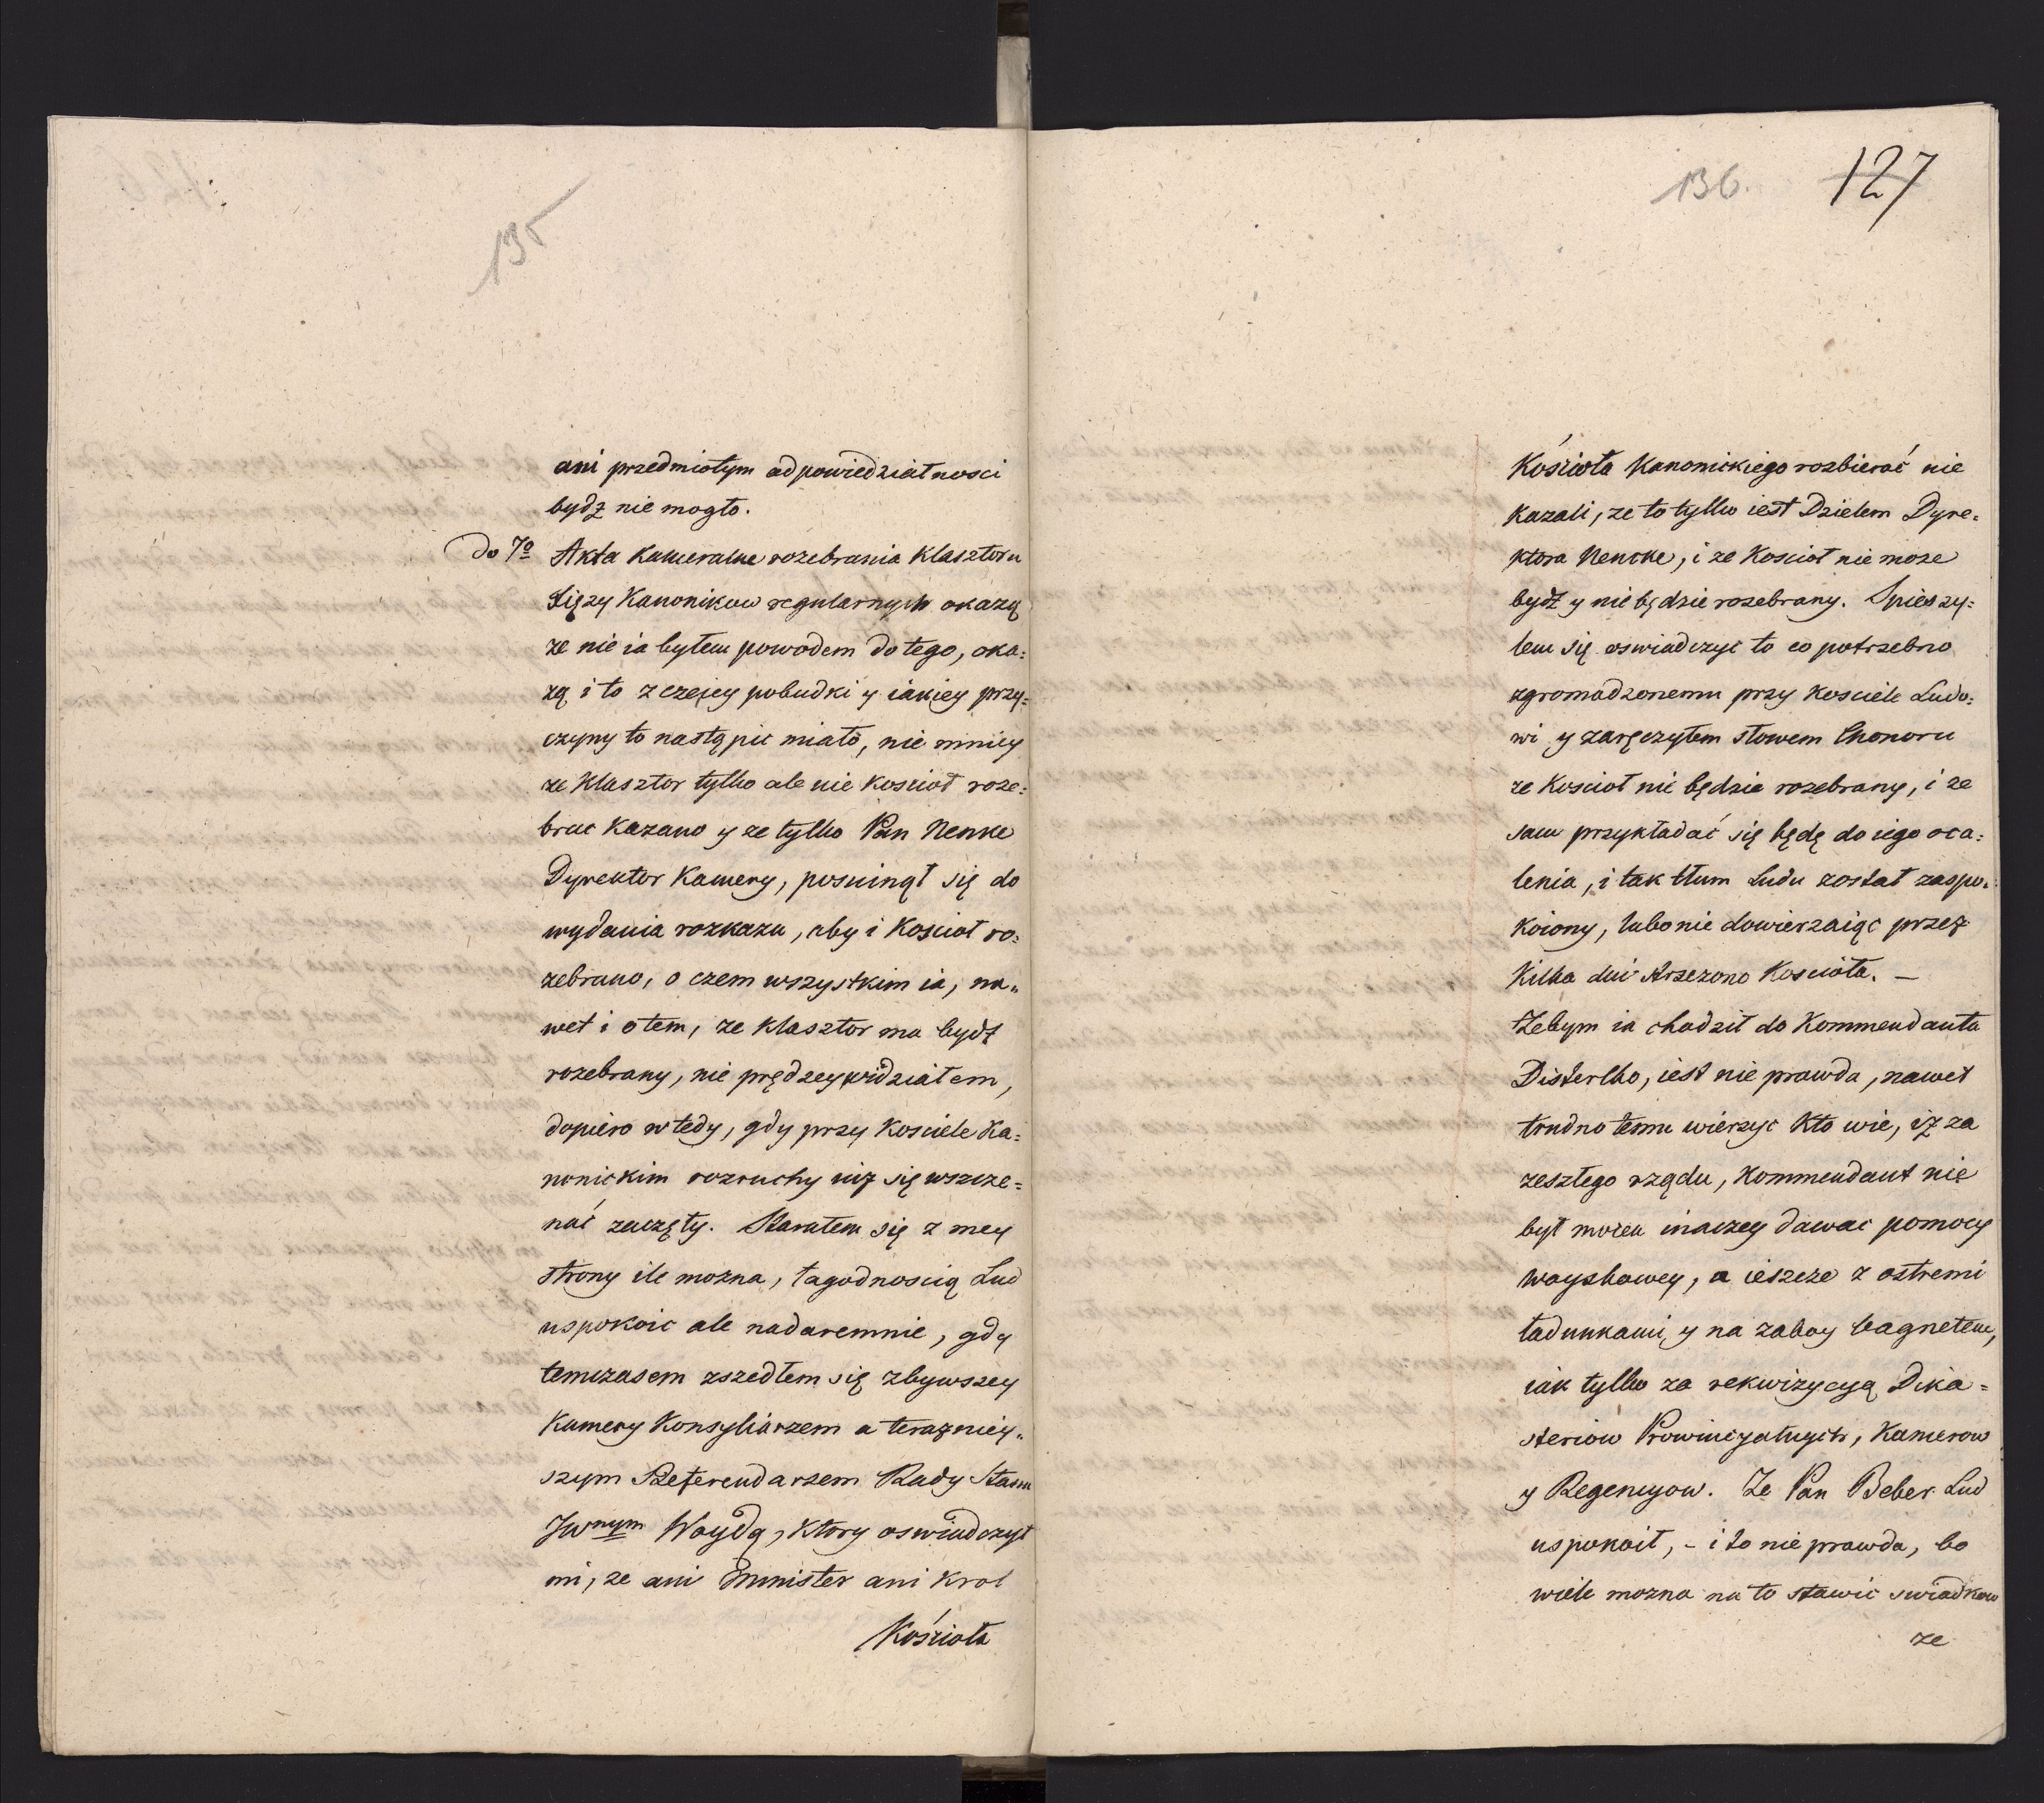 135
ani przedmiotym adpowiedziałnosci
bydz nie mogło.
do 7o Akta Kameralne rozebrania Klasztoru
Xięzy Kanonikow regularnych okazą
ze nie ia byłem powodem do tego, oka=
zą i to z czejey pobudki y iakiey przy=
czyny to nastąpic miało, nie mniey
ze Klasztor tylko ale nie Koscioł roze=
brac Kazano y ze tylko Pan Nenke
Dyrektor Kamery, posuinął się do
wydania rozkazu, aby i Kosciot ro=
zebrano, o czem wszystkim ia, na„
wet i otem, ze Klasztor ma bydz
rozebrany, nie prędzey widziałem,
dopiero wtedy, gdy przy Kosciele Ka=
nonickim rozruchy iuz się wszcze=
nać zaczęły. Starałem się z mey
strony ile mozna, łagodnoscią Lud
uspokoic ale nadaremnie, gdy
temczasem zszedłem się zbywszey
Kamery Konsyliarzem a terazniey„
szym Referendarzem Rady Stanu
JWnym Woydą, ktory oswiadczył
mi, ze ani Minister ani Krol
Kośzioła
136. 127
Kośzioła Kanonickiego rozbierać nie
Kazali, ze to tylko iest Dziełem Dyre=
ktora Nencke, i ze Kosciot nie moze
bydz y nie będzie rozebrany. Spieszy=
łem się oswiadczyc to co potrzebno
zgromadzonemu przy Kosciele Ludo=
wi y zaręczyłem słowem Chonoru
ze Kosciot nie będzie rozebrany, i ze
sam przykładać się będę do iego oca=
lenia, i tak tłum Ludu został zaspo„
Koiony, lubo nie dowierzaiąc przez
Kilka dni strzezono Kościoła. —
Zebym ia chodził do Kommendanta
Disterlho, iest nie prawda, nawet
trudno temu wierzyc Kto wie, iz za
zeszłego rządu, Kommendant nie
był mozen inaczey dawac pomocy
woyskowey, a ieszcze z ostremi
ładunkami y na zaboy bagnetem,
iak tylko za rekwizycyą Dika=
steriow Prowincyalnych, Kamerow
y Regencyow. Ze Pan Beber Lud
uspokoił, – i to nie prawda, bo
wiele mozna na to stawic swiadkow
ze